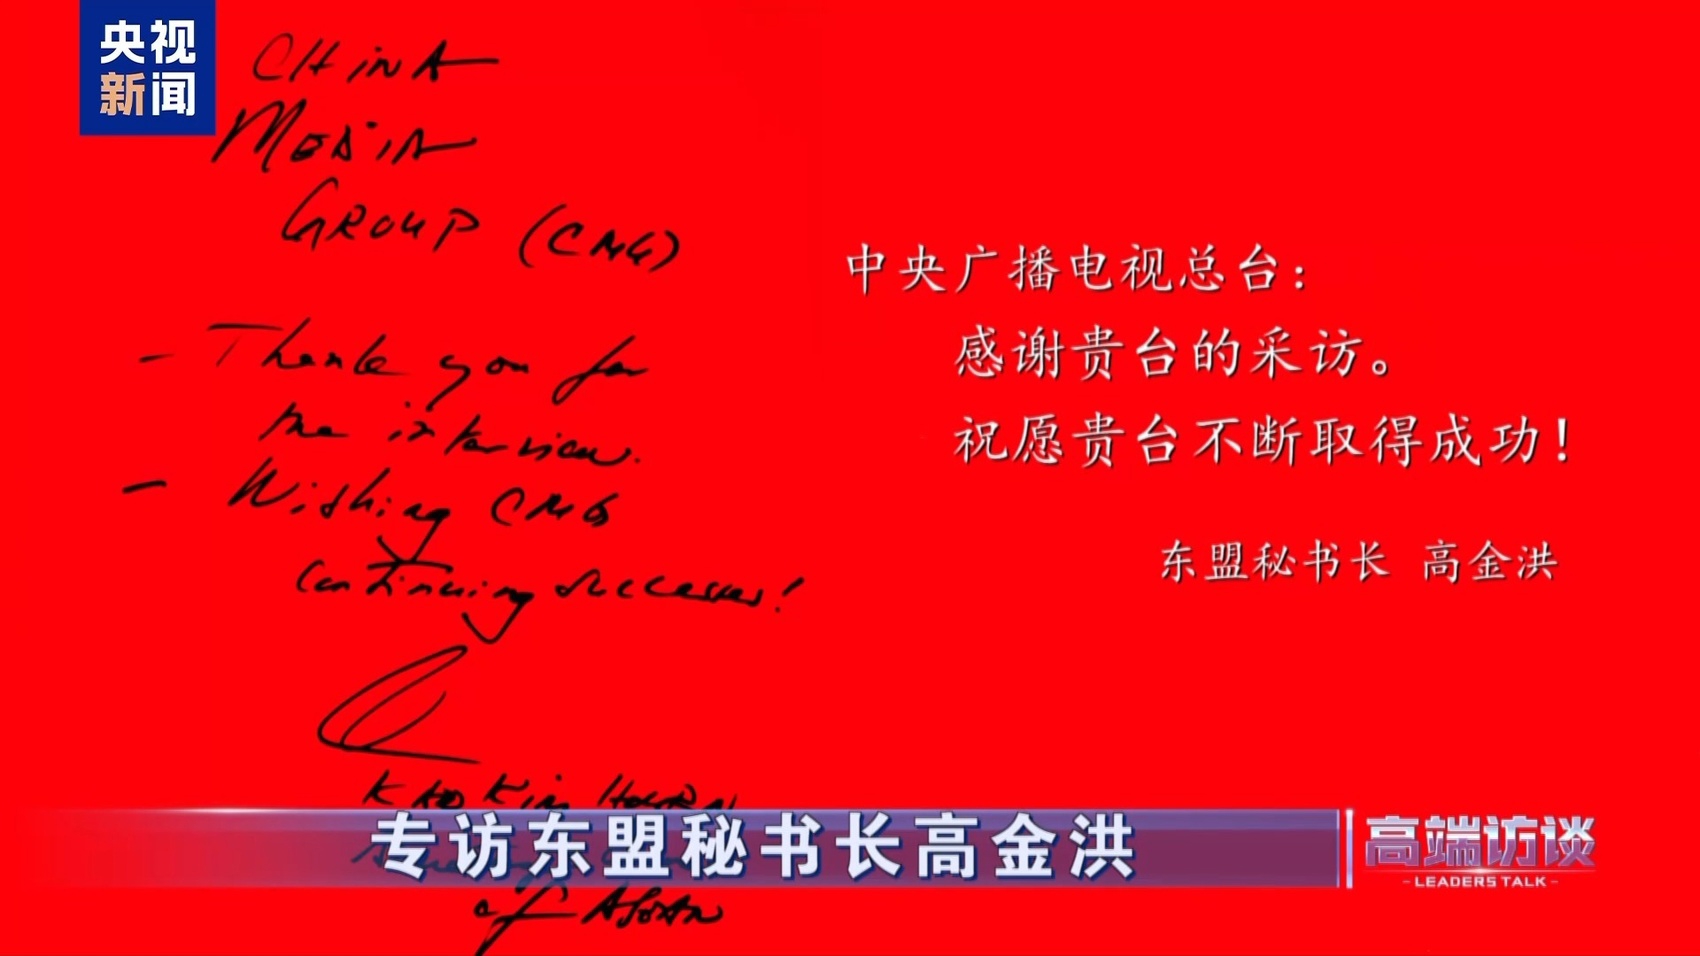 央视
新闻
CHINA
MEDIA
GROUP (CMG)
- Thank you for
the interview.
- Wishing CMG
continuing successes!
KAO KIM HOURN
of ASEAN
中央广播电视总台：
感谢贵台的采访。
祝愿贵台不断取得成功！
东盟秘书长 高金洪
专访东盟秘书长高金洪
高端访谈
-LEADERS TALK-